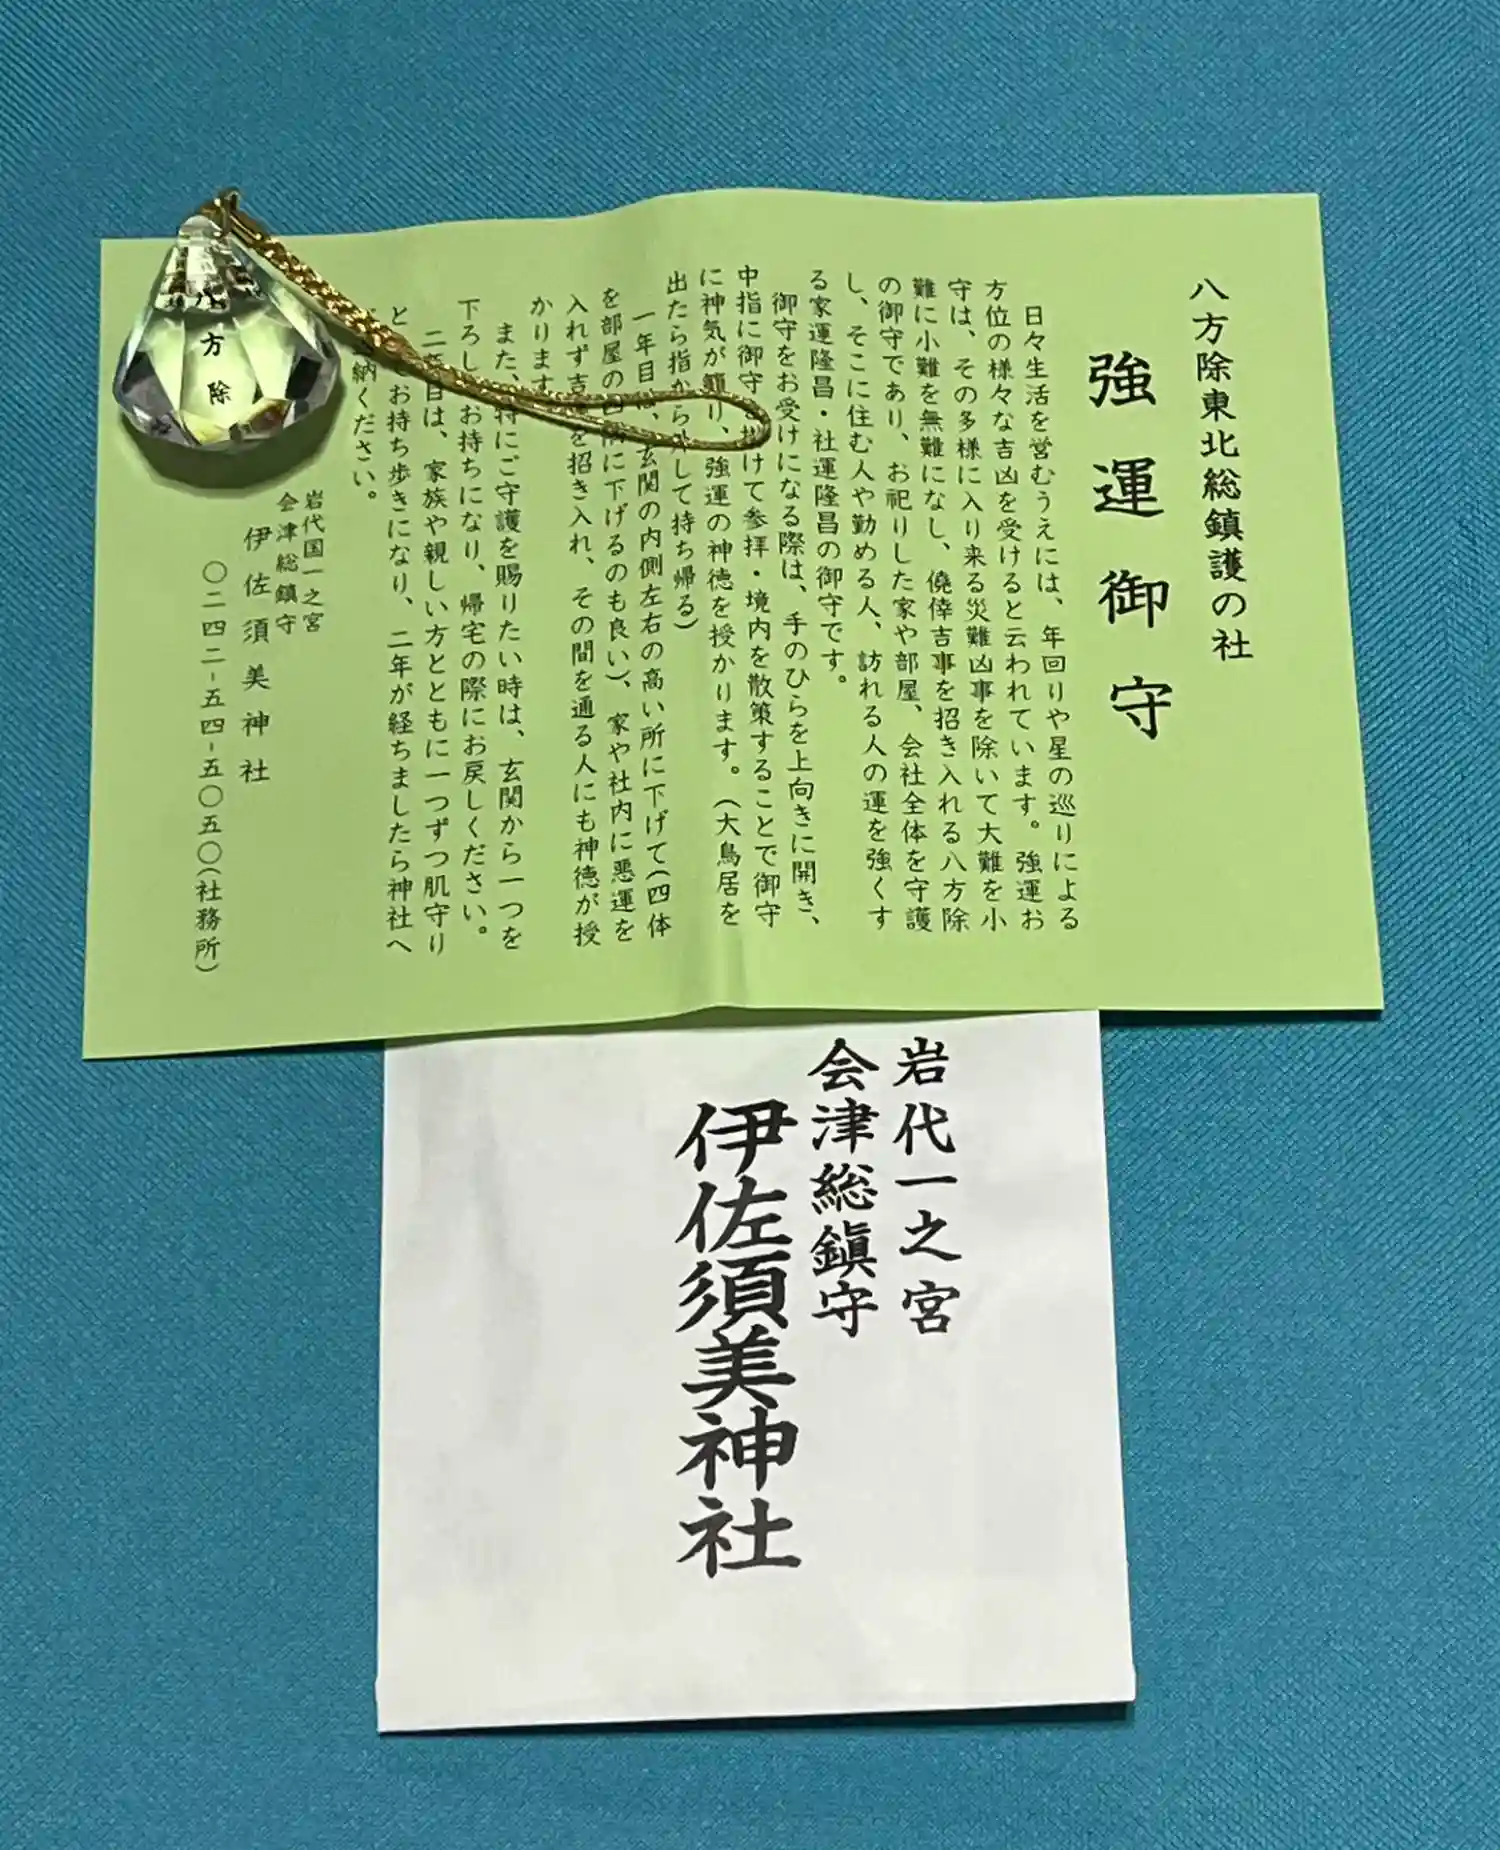 八方除東北総鎮護の社
強運御守
日々生活を営むうえには、年回りや星の巡りによる
方位の様々な吉凶を受けると云われています。強運お
守は、その多様に入り来る災難凶事を除いて大難を小
難に小難を無難になし、僥倖吉事を招き入れる八方除
の御守であり、お祀りした家や部屋、会社全体を守護
し、そこに住む人や勤める人、訪れる人の運を強くす
る家運隆昌・社運隆昌の御守です。
御守をお受けになる際は、手のひらを上向きに開き、
中指に御守を掛けて参拝・境内を散策することで御守
に神気が籠り、強運の神徳を授かります。(大鳥居を
出たら指から外して持ち帰る)
一年目は、玄関の内側左右の高い所に下げて(四体
を部屋の四隅に下げるのも良い)、家や社内に悪運を
入れず吉運を招き入れ、その間を通る人にも神徳が授
かります
また、特にご守護を賜りたい時は、玄関から一つを
下ろし お持ちになり、帰宅の際にお戻しください。
二年目は、家族や親しい方とともに一つずつ肌守り
と お持ち歩きになり、二年が経ちましたら神社へ
納ください。
岩代国一之宮
会津総鎮守
伊佐須美神社
〇二四二-五四-五〇五〇(社務所)
八方除
岩代一之宮
会津総鎮守
伊佐須美神社